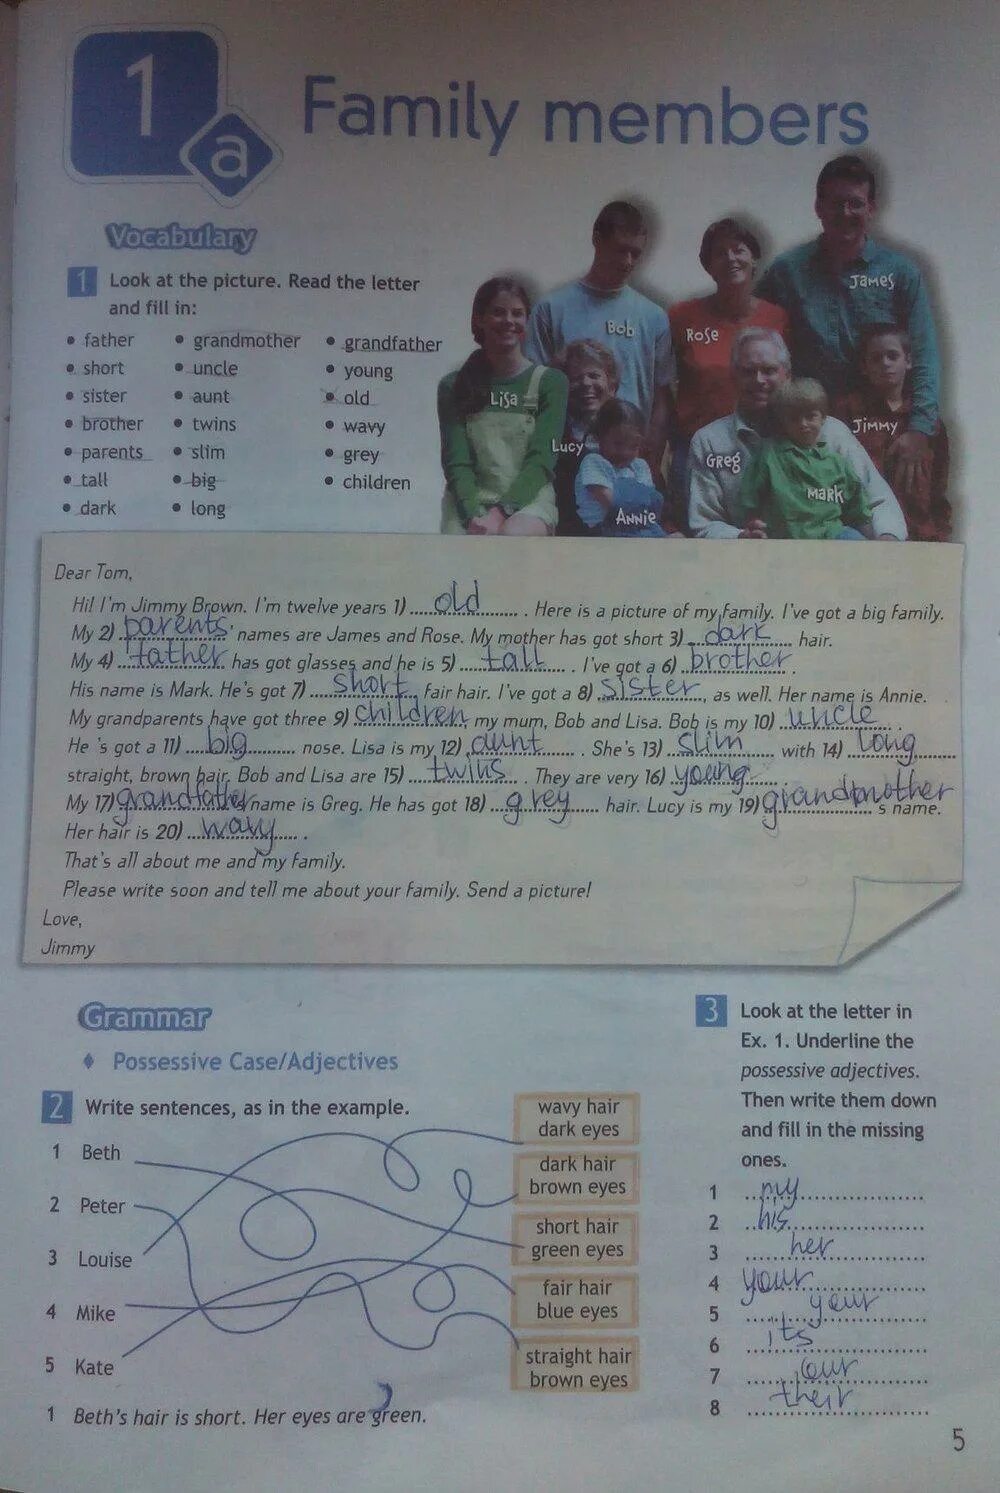 1
a
Family members
Vocabulary
1 Look at the picture. Read the letter
and fill in:
• father • grandmother • grandfather
• short • uncle • young
• sister • aunt • old
• brother • twins • wavy
• parents • slim • grey
• tall • big • children
• dark • long
James
Bob
Rose
Lisa
Jimmy
Lucy
Greg
Mark
Annie
Dear Tom,
Hi! I'm Jimmy Brown. I'm twelve years 1) old . Here is a picture of my family. I've got a big family.
My 2) parents' names are James and Rose. My mother has got short 3) dark hair.
My 4) father has got glasses and he is 5) tall . I've got a 6) brother .
His name is Mark. He's got 7) short, fair hair. I've got a 8) sister, as well. Her name is Annie.
My grandparents have got three 9) children, my mum, Bob and Lisa. Bob is my 10) uncle .
He 's got a 11) big nose. Lisa is my 12) aunt . She's 13) slim with 14) long
straight, brown hair. Bob and Lisa are 15) twins . They are very 16) young .
My 17) grandfather's name is Greg. He has got 18) grey hair. Lucy is my 19) grandmother 's name.
Her hair is 20) wavy .
That's all about me and my family.
Please write soon and tell me about your family. Send a picture!
Love,
Jimmy
Grammar
♦ Possessive Case/Adjectives
2 Write sentences, as in the example.
1 Beth
2 Peter
3 Louise
4 Mike
5 Kate
wavy hair
dark eyes
dark hair
brown eyes
short hair
green eyes
fair hair
blue eyes
straight hair
brown eyes
1 Beth's hair is short. Her eyes are green.
3 Look at the letter in
Ex. 1. Underline the
possessive adjectives.
Then write them down
and fill in the missing
ones.
1 my
2 his
3 her
4 your
5 your
6 its
7 our
8 their
5